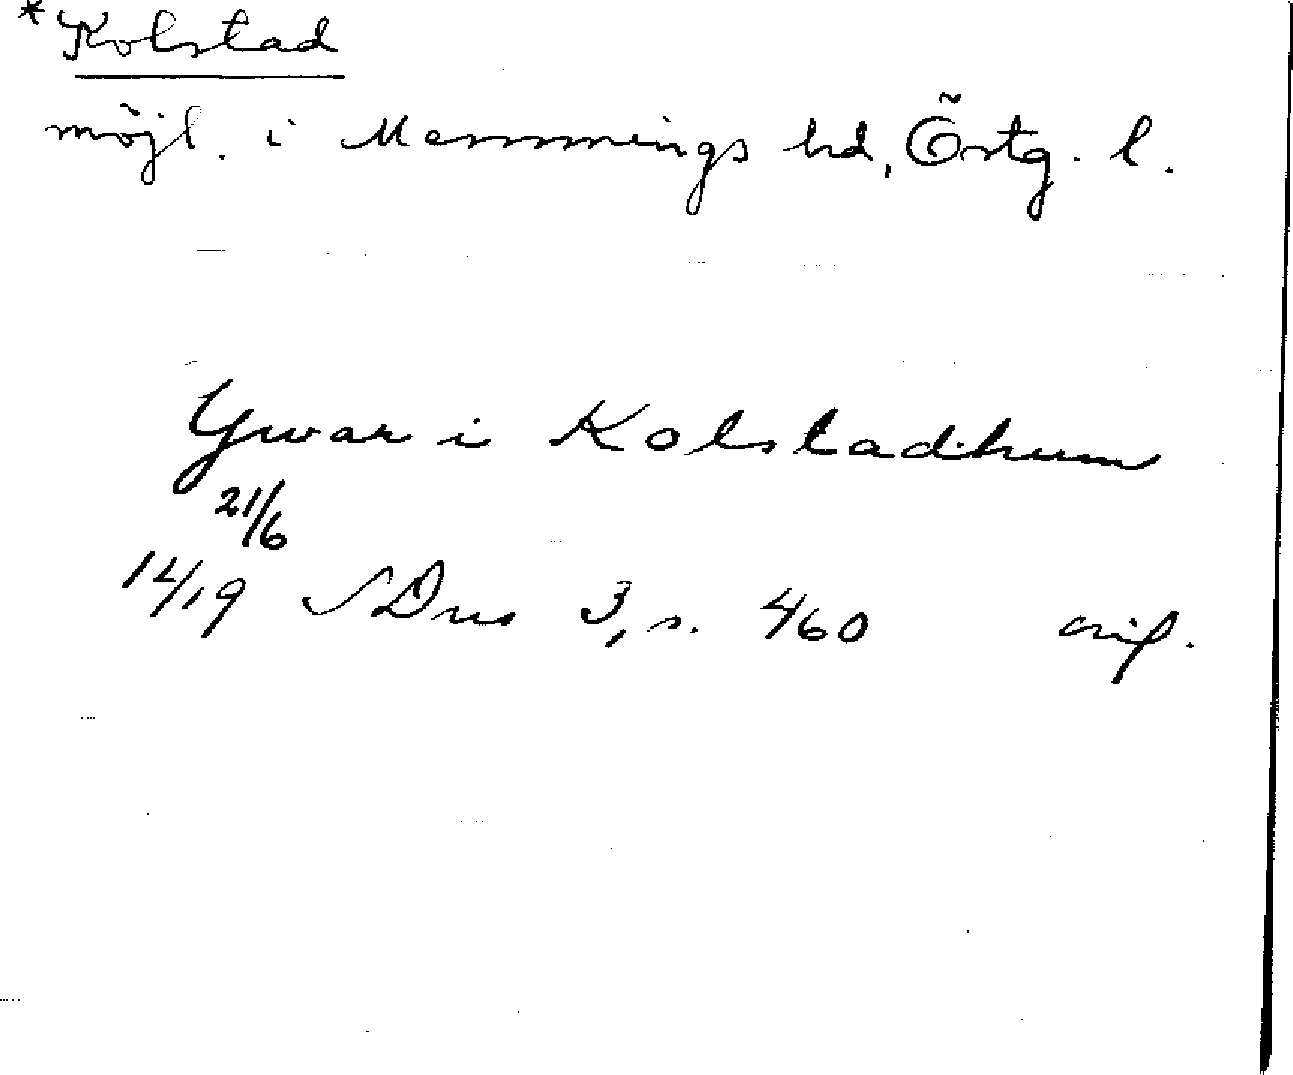 *Kolstad
möjl. i Memmings hd, Östg. l.
Ywar i Kolstadhum
21/6
1419 SDns 3, s. 460 orig.